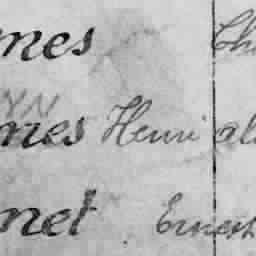 mes Ch
YN
mes Henri al
met Ernest